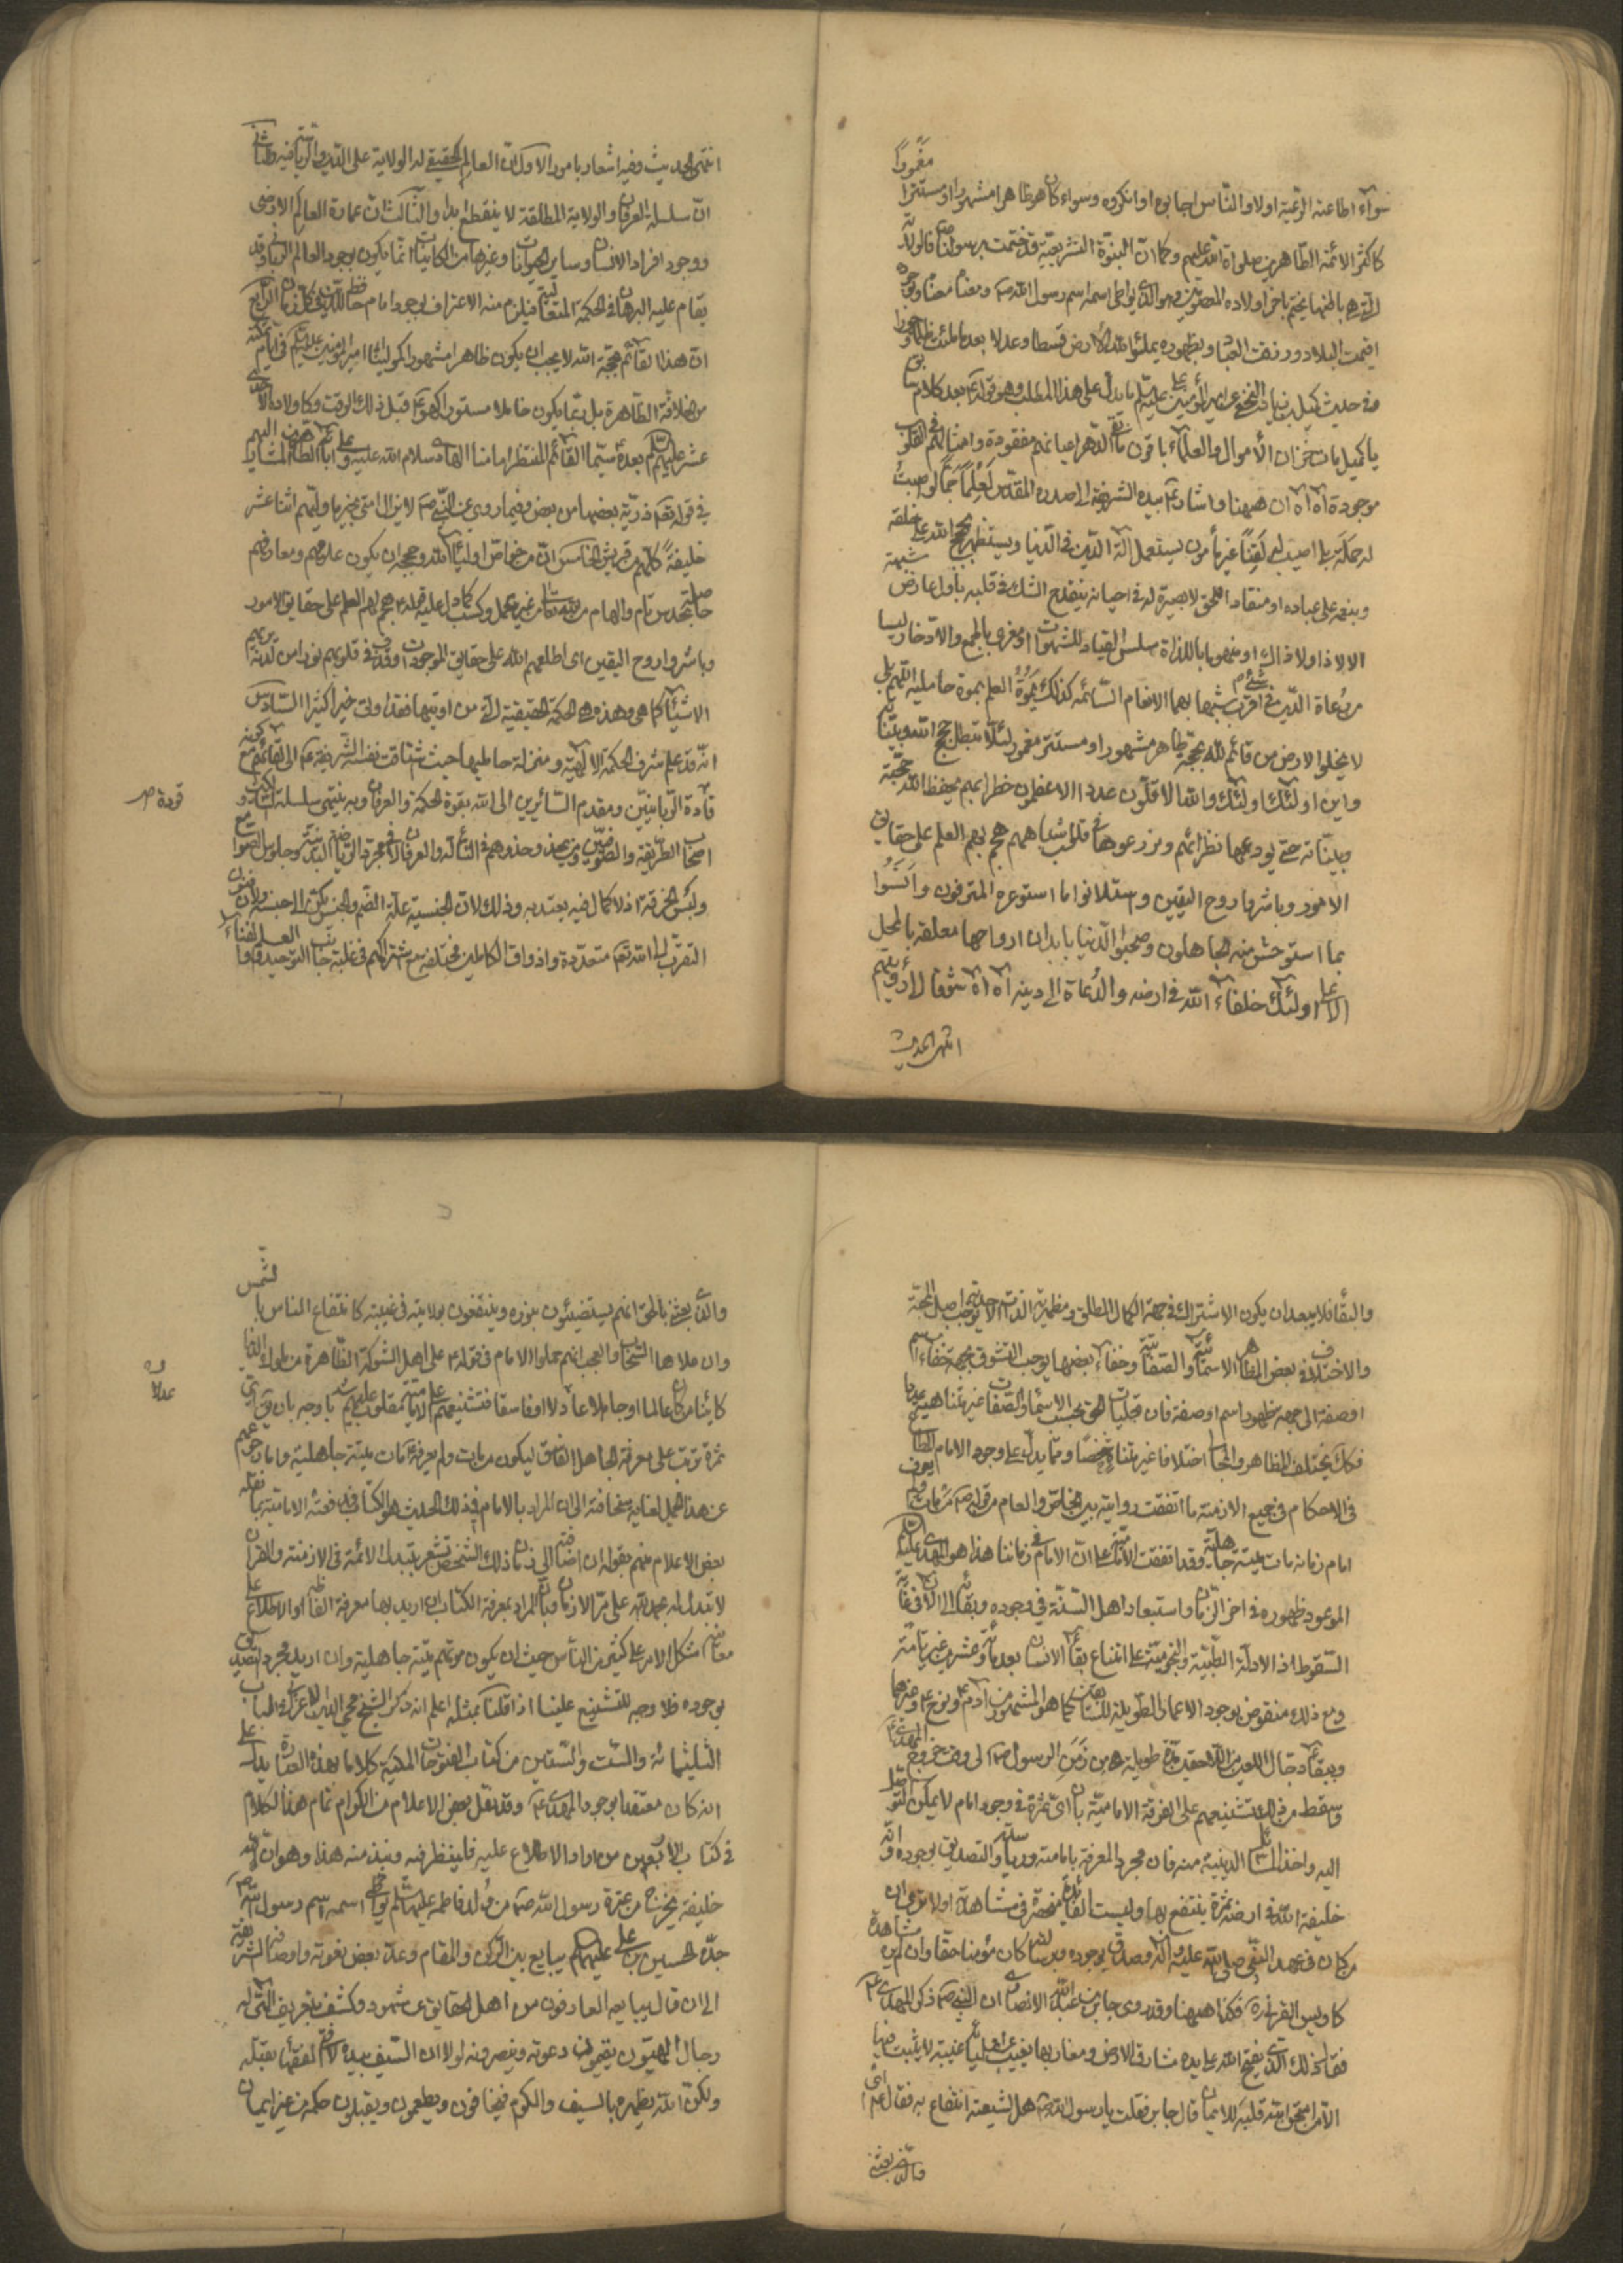 سوآء اطاعته الرعية اولا والناس اجابوه او انكروه وسواء كان هو ظاهرا مشهورا او مستترا
مغمورا
كاكثر الائمة الطاهرين صلواة الله عليهم وكما ان النبوة التشريعية قد ختمت برسولنا ص فالولاية
التي هي باطنها يختم باخر اولاده المعصومين وهو الذي يواطى اسمه اسم رسول الله ص ومعناه معناه وبوجوده
اقيمت البلاد ورزقت العباد وبظهوره يملؤ الله الارض قسطا وعدلا بعد ما ملئت ظلما وجورا
و في حديث كميل بن زياد النخعي عن امير المؤمنين عليه ما يدل على هذا المطلب وهو قوله ع بعد كلام
يا كميل مات خزان الأموال والعلماء باقون ما بقى الدهر اعيانهم مفقودة وامثالهم في القلوب
موجودة آه آه ان ههنا واشار ع بيده الشريفة الى صدره المقدس لَعِلْماً جَمّاً لو اصبت
له حملة بلى اصيب له لَقِناً غير مأمون يستعمل آلة الدين في الدنيا ويستظهر بحجج الله على خلقه
وبنعمه على عباده او منقادا للحق لا بصيرة له في احيائه ينقدح الشك في قلبه باول عارض شبهة
الا لا ذا ولا ذاك او منهوما باللذاة سلس القياد للشهوات او مغرى بالجمع والادخار ليسا
من رعاة الدين في شئ اقرب شبها بهما الانعام السائمه كذلك يموت العلم بموت حامليه اللهم بلى
لا يخلوا الارض من قائم لله بحجة ظاهر مشهور او مستتر مغمور لئلا تبطل حجج الله وبيناته
واين اولئك اولئك والله الاقلون عددا الاعظمون خطرا بهم يحفظ الله حججه
وبيناته حتى يودعها نظرائهم ويزرعوها في قلوب اشباههم هجم بهم العلم على حقايق
الامور وباشروا روح اليقين واستلانوا ما استوعره المترفون وانسوا
بما استوحش منه الجاهلون وصحبوا الدنيا بابدان ارواحها معلقة بالمحل
الاعلى اولئك خلفاء الله في ارضه والدعاة الى دينه آه آه شوقا الى رؤيتهم
انتهى الحديث
انتهى الحديث وفيه اشعار بامور الاول ان العالم الحقيقي له الولاية على الدين والرياسة فيه والثاني
ان سلسلة العرفان والولاية المطلقة لا ينقطع ابدا والثالث ان عمارة العالم الارضي
ووجود افراد الانسان وساير الحيوانات وغيرها من الكاينات انما يكون بوجود العالم الرباني وقد
يقام عليه البرهان في الحكمة المتعالية فيلزم منه الاعتراف بوجود امام حافظ للدين في كل زمان الرابع
ان هذا القائم بحجة الله لا يجب ان يكون ظاهرا مشهورا كمولينا امير المؤمنين في ايام تمكنه
من الخلافة الظاهرة بل ربما يكون خاملا مستورا كهو ع قبل ذلك الوقت وكاولاده الاحدى
عشر عليهم بعده سيما القائم المنتظر امامنا الهادى سلام الله عليه وعلى آبائه الطاهرين المشار اليهم
في قوله تعم ذرية بعضها من بعض وفيما روى عن النبي ص لا يزال امتى بخير ما وليهم اثنا عشر
خليفة كلهم من قريش الخامس ان من خواص اولياء الله وحججه ان يكون علومهم ومعارفهم
حاصلة بحدس تام والهام من غير تعمل وكسب كما دل عليه قوله ع هجم بهم العلم على حقايق الامور
وباشروا روح اليقين اى اطلعهم الله على حقايق الموجودات وقذف في قلوبهم نورا من لدنه
الاشياء كما هي وهذه هي الحكمة الحقيقية التي من اوتيها فقد اوتى خيرا كثيرا السادس
انه قد علم شرف الحكمة الالهية ومنزلة حامليها حيث اشتاقت نفسه الشريفة ع الى لقائهم مع كونه
قادة الربانيين ومقدم السائرين الى الله بقوة الحكمة والعرفان وبه ينتهى سلسلة
قودة ص
اصحاب الطريقة والتصوف في التأله والعرفان لا في مجرد الرياضة البدنية وجلوس الصوامع
ولبس الخرقة اذ لا كمال فيه يعتد به وذلك لان الجنسية علة الضم والجنس يكثر الى الجنس
التقرب الى الله تعم متعددة واذواق الكاملين مختلفة مع اشتراكهم في غلبة جانب التوحيد
والبقاء فلا يبعد ان يكون الاشتراك في جهة الكمال المطلق ومظهرية الذات الاحدية يوجب اصل المحبة
والاختلاف في بعض المظاهر الاسمائية والصفاتية وخفاء بعضها يوجب التشوق من جهة خفاء اسم
او صفة الى جهة ظهور اسم او صفة فان تجليات الحق بحسب الاسماء والصفات غير متناهية
فكان يختلف المظاهر والمجالى اختلافا غير متناه شخصا ومما يدل على وجود الامام المطاع
في الاحكام في جميع الازمنة ما اتفقت روايته بين الخاص والعام من قوله ص من مات ولم يعرف
امام زمانه مات ميتة جاهلية وقد اتفقت الامامية على ان الامام في زماننا هذا هو المهدي
الموعود ظهوره في اخر الزمان واستبعاد اهل السنة في وجوده وبقائه الى الان في غاية
السقوط اذ الادلة الطبية والنجومية على امتناع بقاء الانسان بعد مأئة وعشرين غير تامة
ومع ذلك منقوض بوجود الاعمار الطويلة للسابقين كما هو المشهور من ادم ع ونوح ع وغيرهما
وببقاء دجال اللعين الى مدة طويلة هي من زمن الرسول ص الى وقت خروج المهدى ع
وسقط من ذلك تشنيعهم على الفرقة الامامية بان اى ثمرة في وجود امام لا يمكن التوصل
اليه واخذ المسائل الدينية منه فان مجرد المعرفة بامامته ورياسته والتصديق بوجوده وانه
خليفة الله في ارضه ثمرة ينتفع بها وليست الفائدة منحصرة في مشاهدته اولا ترى ان
من كان في عهد النبي صلى الله عليه واله وصدق بوجوده وبرسالته كان مؤمنا حقا وان لم يره مشاهدة
كاويس القرني ره فكذا ههنا وقد روى جابر بن عبد الله الانصاري ان النبي ص ذكر المهدى ع
فقال ذلك الذي يفتح الله على يده مشارق الارض ومغاربها يغيب عن اوليائه غيبة لا يثبت فيها
الا من امتحن الله قلبه للايمان قال جابر فقلت يا رسول الله ص هل لشيعته انتفاع به فقال ع اى
والذي بعثنى
والذي بعثني بالحق انهم يستضيئون بنوره وينتفعون بولايته في غيبته كانتفاع الناس بالشمس
وان علاها السحاب والعجب انهم حملوا الامام في قوله ع على اهل الشوكة الظاهرة من ملوك الدنيا
كائنا من كان عالما او جاهلا عادلا او فاسقا فتشنيعهم على الامامية مقلوب عليهم باوجه بان يق اى
عدلا
ثمرة ترتب على معرفة الجاهل الفاسق ليكون من مات ولم يعرفه مات ميتة جاهلية
بعض الاعلام منهم بقوله ان اضافته الى زمان ذلك الشخص تشعر بتبدل الائمة في الازمنة والقران
لا تبدل له بحمد الله على مر الازمان وبان المراد بمعرفة الكتاب ان اريد بها معرفة الفاظه او الاطلاع على
معانيه اشكل الامر على كثير من الناس حيث ان يكون موتهم ميتة جاهلية وان اريد مجرد التصديق
بوجوده فلا وجه للتشنيع علينا اذا قلنا بمثله اعلم انه ذكر الشيخ محى الدين الاعرابى في الباب
الثلثمائه والست والستين من كتاب الفتوحات المكية كلاما بهذه العبارة يدل على
انه كان معتقدا بوجود المهدى ع وقد نقل بعض الاعلام من الكرام تمام هذا الكلام
في كتاب الاربعين من اراد الاطلاع عليه فلينظر فيه ونبذ منه هذا وهو ان لله
خليفة يخرج من عترة رسول الله ص من ولد فاطمه عليها يواطى اسمه اسم رسول الله ص
جده الحسين بن على عليهم يبايع بين الركن والمقام وعد بعض نعوته واوصافه الشريفة
الى ان قال يبايعه العارفون من أهل الحقايق عن شهود وكشف بتعريف الهى له
رجال الهيون يقيمون دعوته وينصرونه لولا ان السيف بيده لافتى الفقهاء بقتله
ولكن الله يظهره بالسيف والكرم فيخافون ويطعمون ويقبلون حكمه من غير ايمان